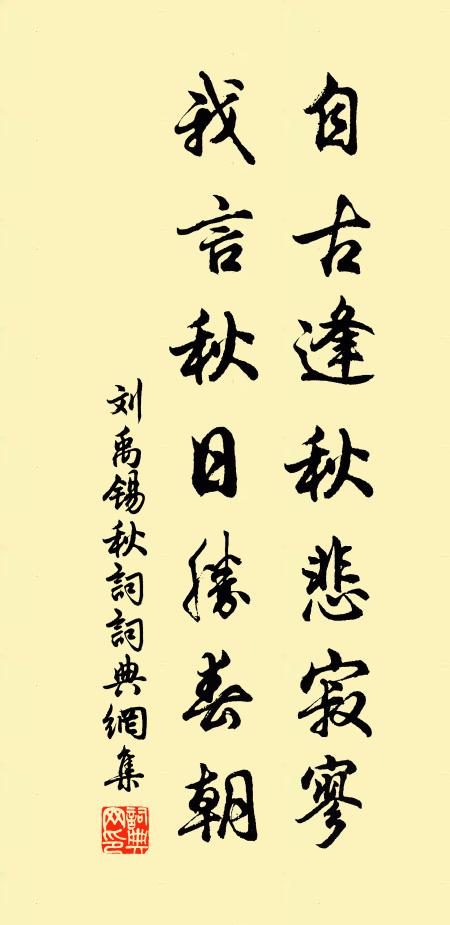 自古逢秋悲寂寥
我言秋日勝春朝
刘禹锡秋詞詞典網集
詞典
网印